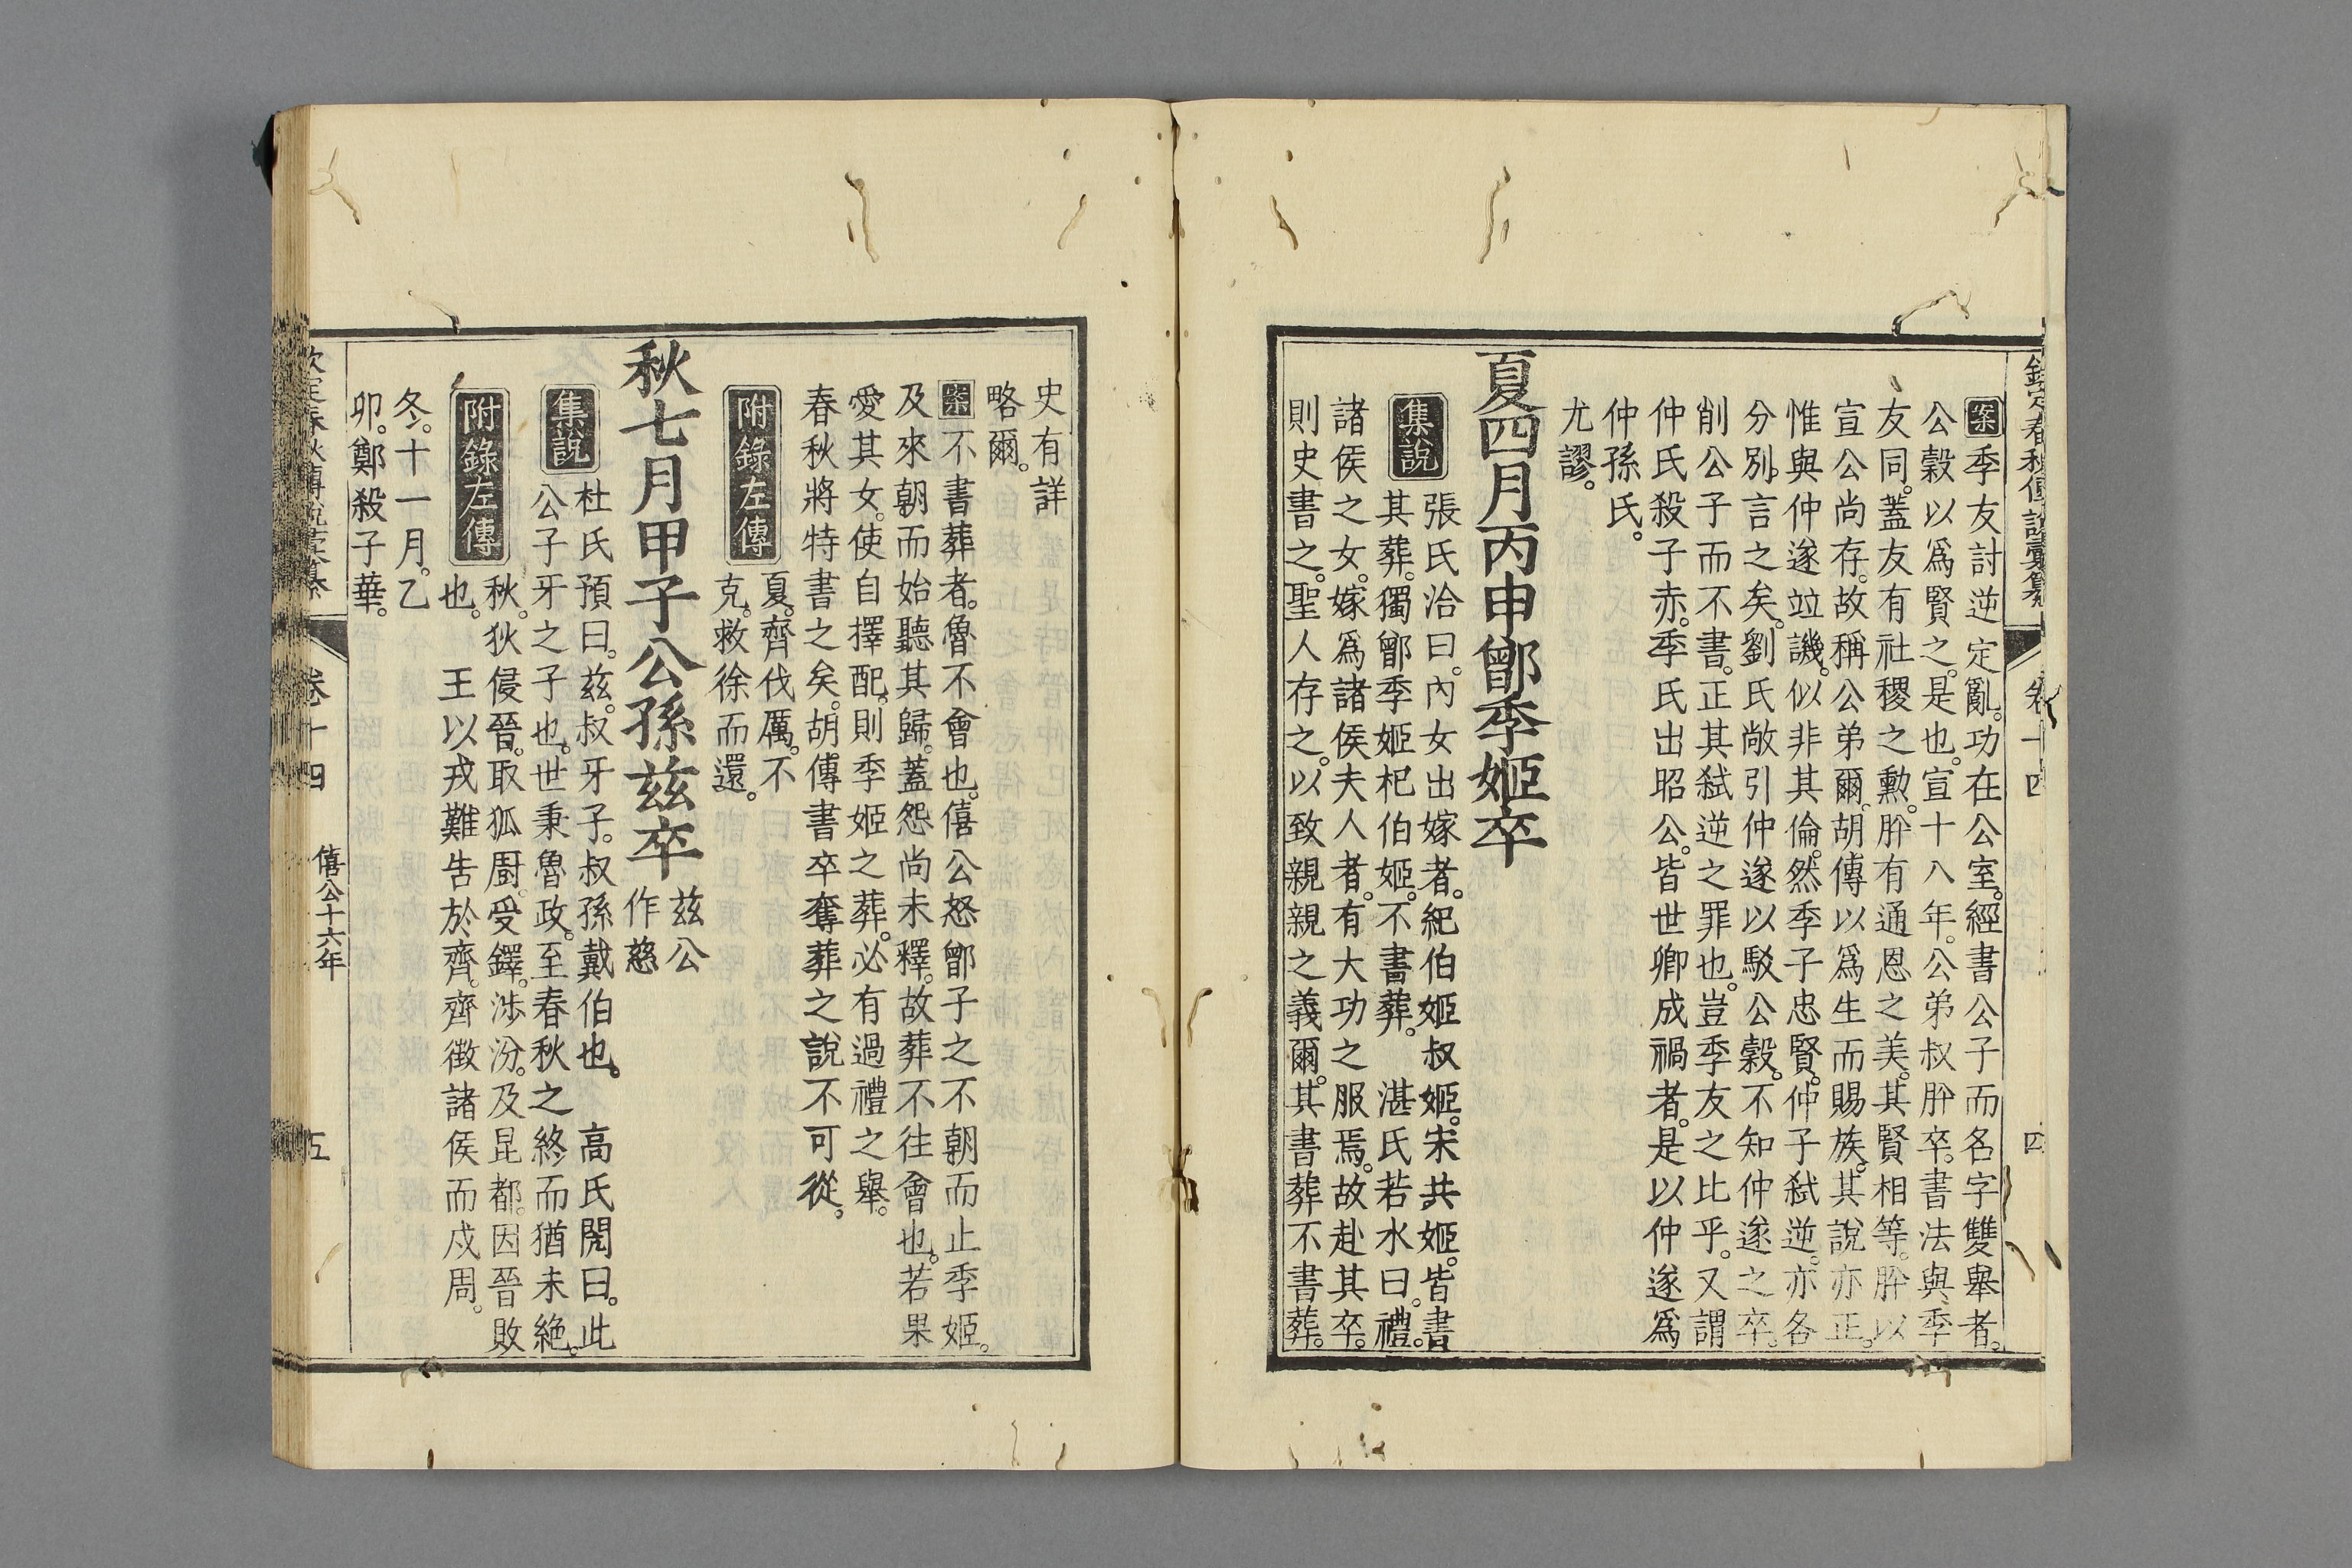 欽定春秋傳說彙纂 卷十四 四
案季友討逆定亂。功在公室。經書公子而名字雙舉者。
公穀以爲賢之。是也。宣十八年。公弟叔肸卒。書法與季
友同。蓋友有社稷之勲。肸有通恩之美。其賢相等。肸以
宣公尚存。故稱公弟爾。胡傳以爲生而賜族。其說亦正。
惟與仲遂竝譏。似非其倫。然季子忠賢。仲子弑逆。亦各
分別。言之矣。劉氏敞引仲遂以駁公穀。不知仲遂之卒。
削公子而不書。正其弑逆之罪也。豈季友之比乎。又謂
仲氏殺子赤。季氏出昭公。皆世卿成禍者。是以仲遂爲
仲孫氏。
尤謬。
夏四月丙申鄫季姬卒
集說
張氏洽曰。內女出嫁者。紀伯姬叔姬。宋共姬。皆書
其葬。獨鄫季姬杞伯姬。不書葬。 湛氏若水曰。禮。
諸侯之女。嫁爲諸侯夫人者。有大功之服焉。故赴其卒。
則史書之。聖人存之。以致親親之義爾。其書葬不書葬。
史有詳
略爾。
案不書葬者。魯不會也。僖公怒鄫子之不朝而止季姬。
及來朝而始聽其歸。蓋怨尚未釋。故葬不往會也。若果
愛其女。使自擇配。則季姬之葬。必有過禮之舉。
春秋將特書之矣。胡傳書卒奪葬之說不可從。
附錄左傳
夏。齊伐厲。不
克。救徐而還。
秋七月甲子公孫茲卒
茲公
作慈
集說
杜氏預曰。茲。叔牙子。叔孫戴伯也。 高氏閌曰。此
公子牙之子也。世秉魯政。至春秋之終而猶未絶。
附錄左傳
秋。狄侵晉。取狐廚。受鐸。涉汾。及昆都。因晉敗
也。 王以戎難告於齊。齊徵諸侯而戍周。
冬。十一月。乙
卯。鄭殺子華。
欽定春秋傳說彙纂 卷十四 僖公十六年 五